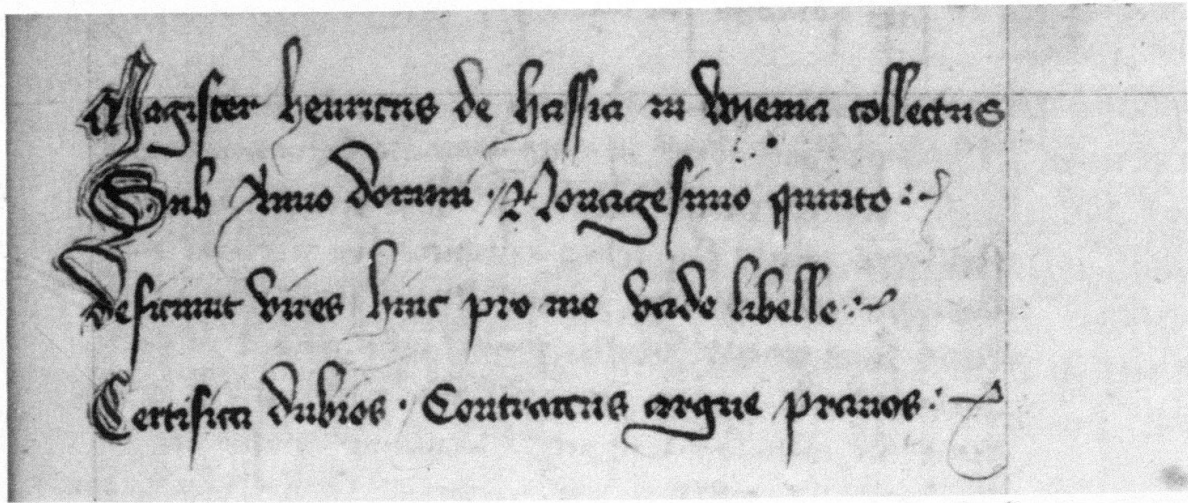 Magister henricus de hassia in wienna collectus
Sub Anno domini · Nonagesimo quinto :~
deficiunt vires hinc pro me vade libelle :~
Certifica dubios · Contractus argue prauos :~